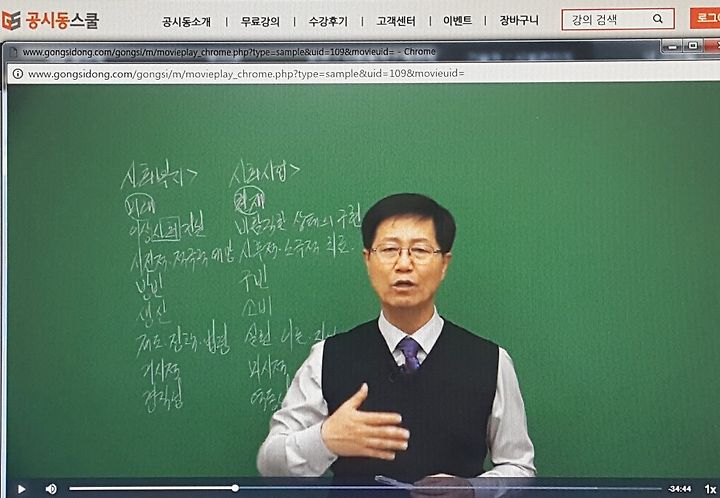 공시동스쿨
공시동소개 | 무료강의 | 수강후기 | 고객센터 | 이벤트 | 장바구니
강의 검색
로그
www.gongsidong.com/gongsi/m/movieplay_chrome.php?type=sample&uid=109&movieuid= - Chrome
www.gongsidong.com/gongsi/m/movieplay_chrome.php?type=sample&uid=109&movieuid=
사회복지> 사회사업>
미래 현재
이상사회지난 바람직한 상태의 구현
사전적·적극적 예방 사후적·소극적 치료
방빈 구빈
생산 소비
제도·정책·법령 실천
거시적 미시적
-34:44 1x